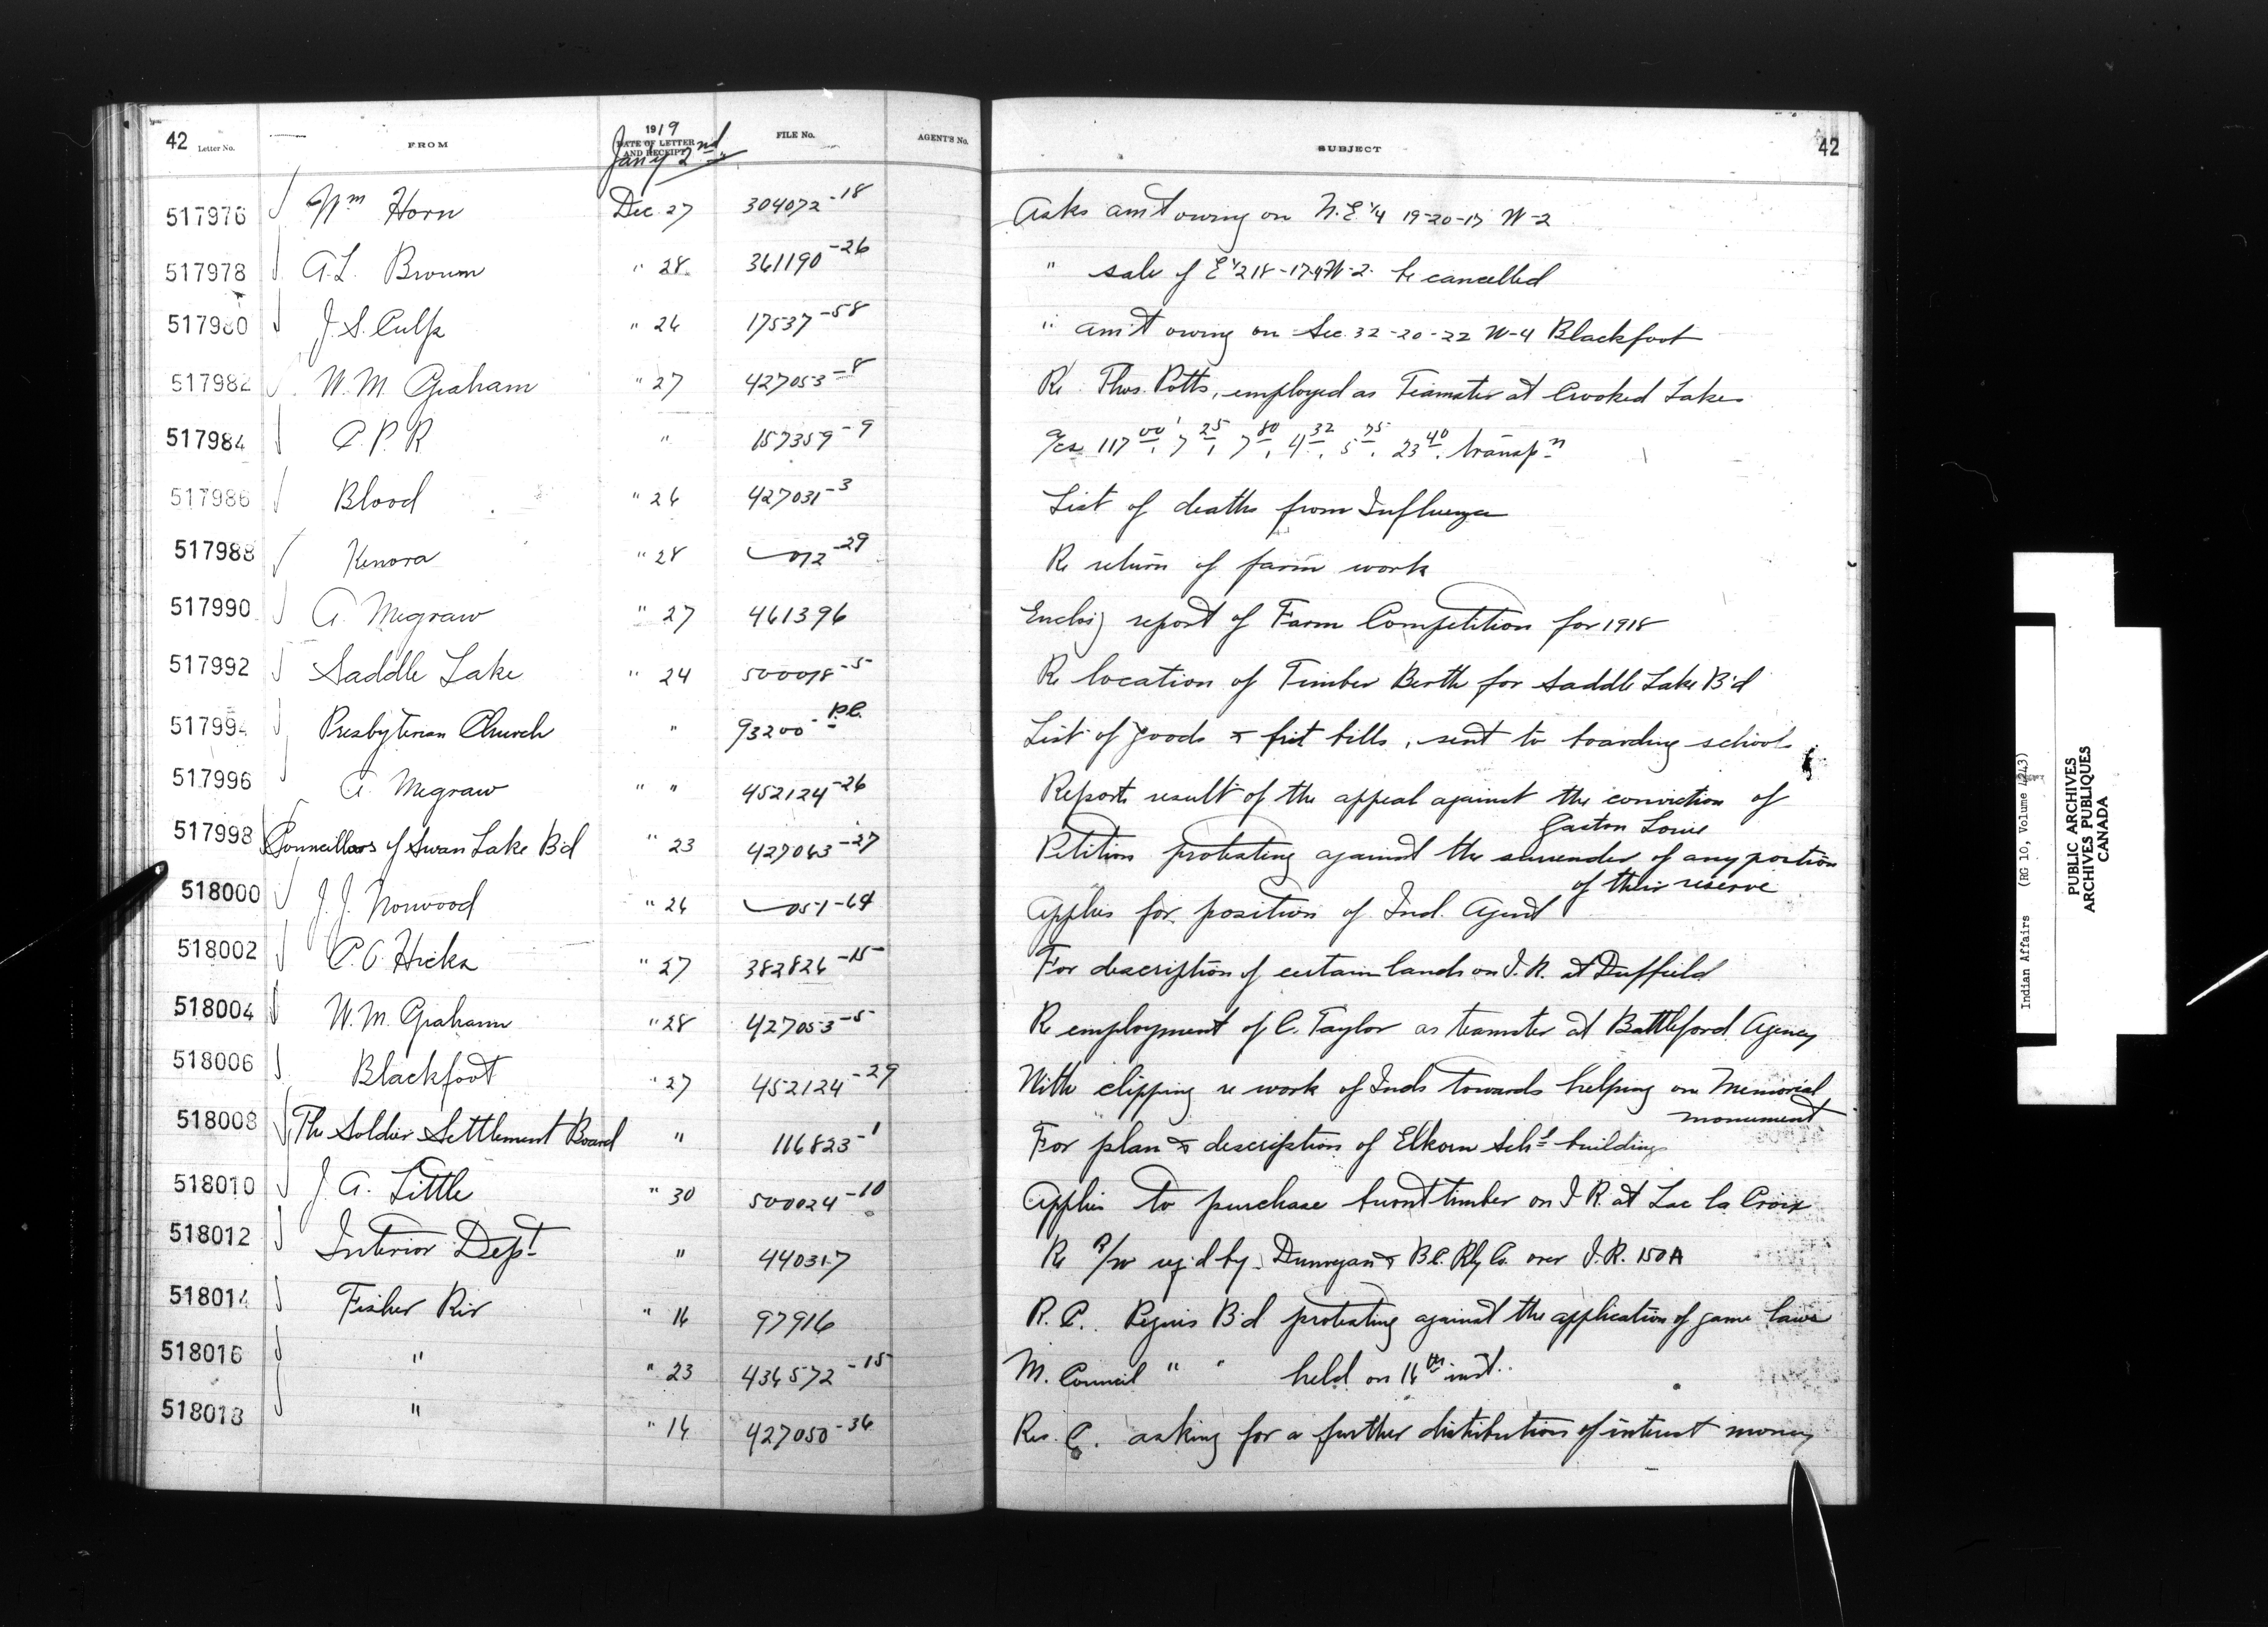 42 Letter No. FROM 1919 DATE OF LETTER AND RECEIPT Jan'y 2nd FILE No. AGENT'S No. SUBJECT 42
517976 Wm Horn Dec. 27 304072-18 Asks am't owing on N.E. 1/4 19-20-17 W-2
517978 A.L. Brown " 28 361190-26 " sale of E 1/2 18-17-4 W-2 be cancelled
517980 J.S. Culp " 26 17537-58 " am't owing on Sec. 32-20-22 W-4 Blackfoot
517982 W.M. Graham " 27 427053-8 Re Thos. Potts, employed as Teamster at Crooked Lakes
517984 C.P.R " 157359-9 a/cs 117 00, 7 25, 7 80, 4 32, 5 75, 23 40, transpn
517986 Blood " 26 427031-3 List of deaths from Influenza
517988 Kenora " 28 072-29 Re return of farm work
517990 A. Megraw " 27 461396 Enclos'g report of Farm Competition for 1918
517992 Saddle Lake " 24 500018-5 Re location of Timber Berth for Saddle Lake B'd
517994 Presbyterian Church " 93200-P.C. List of goods & frt bills, sent to boarding schools
517996 A. Megraw " " 452124-26 Reports result of the appeal against the conviction of
Gaston Louie
517998 Councillors of Swan Lake B'd " 23 427063-27 Petition protesting against the surrender of any portion
of their reserve
518000 J.J. Norwood " 26 051-64 Applies for position of Ind. Agent
518002 C.O. Hicks " 27 382826-15 For description of certain lands on I.R. at Duffield
518004 W.M. Graham " 28 427053-5 Re employment of C. Taylor as teamster at Battleford Agency
518006 Blackfoot " 27 452124-29 With clipping re work of Inds towards helping on Memorial
monument
518008 The Soldier Settlement Board " 116823-1 For plan & description of Elkorn Schl buildings
518010 J.A. Little " 30 500024-10 Applies to purchase burnt timber on I R. at Lac la Croix
518012 Interior Dept " 440317 Re R/W req'd by Dunvegan & B.C. Rly Co. over I.R. 150A
518014 Fisher Riv " 16 97916 R.C. Peguis B'd protesting against the application of game laws
518016 " " 23 436572-15 M. Council " " held on 16th inst.
518018 " " 16 427050-36 Res. C. asking for a further distribution of interest money
Indian Affairs (RG 10, Volume 4243)
PUBLIC ARCHIVES
ARCHIVES PUBLIQUES
CANADA